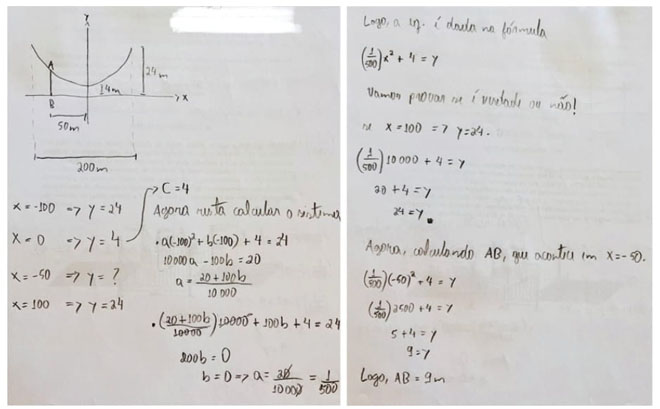 y
A
24m
B
4m
x
50m
200m
x = -100 => y = 24
x = 0 => y = 4
x = -50 => y = ?
x = 100 => y = 24
→ C = 4
Agora resta calcular o sistema
• a(-100)² + b(-100) + 4 = 24
10000a - 100b = 20
a = (20 + 100b)/10 000
• ((20+100b)/10000)10000 + 100b + 4 = 24
200b = 0
b = 0 => a = 20/10000 = 1/500
Logo, a eq. é dada na fórmula
(1/500)x² + 4 = y
Vamos provar se é verdade ou não!
se x = 100 => y = 24.
(1/500)10 000 + 4 = y
20 + 4 = y
24 = y.
Agora, calculando AB, que acontece em x = -50.
(1/500)(-50)² + 4 = y
(1/500)2500 + 4 = y
5 + 4 = y
9 = y
Logo, AB = 9m